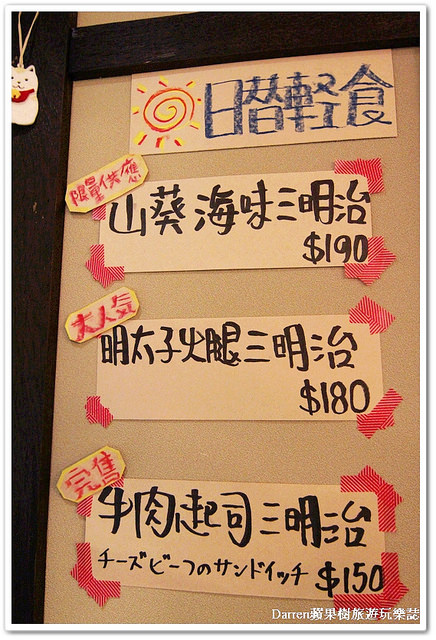 日替軽食
限量供應
山葵海味三明治
$190
大人気
明太子火腿三明治
$180
完售
牛肉起司三明治
チーズビーフのサンドイッチ $150
Darren蘋果樹旅遊玩樂誌